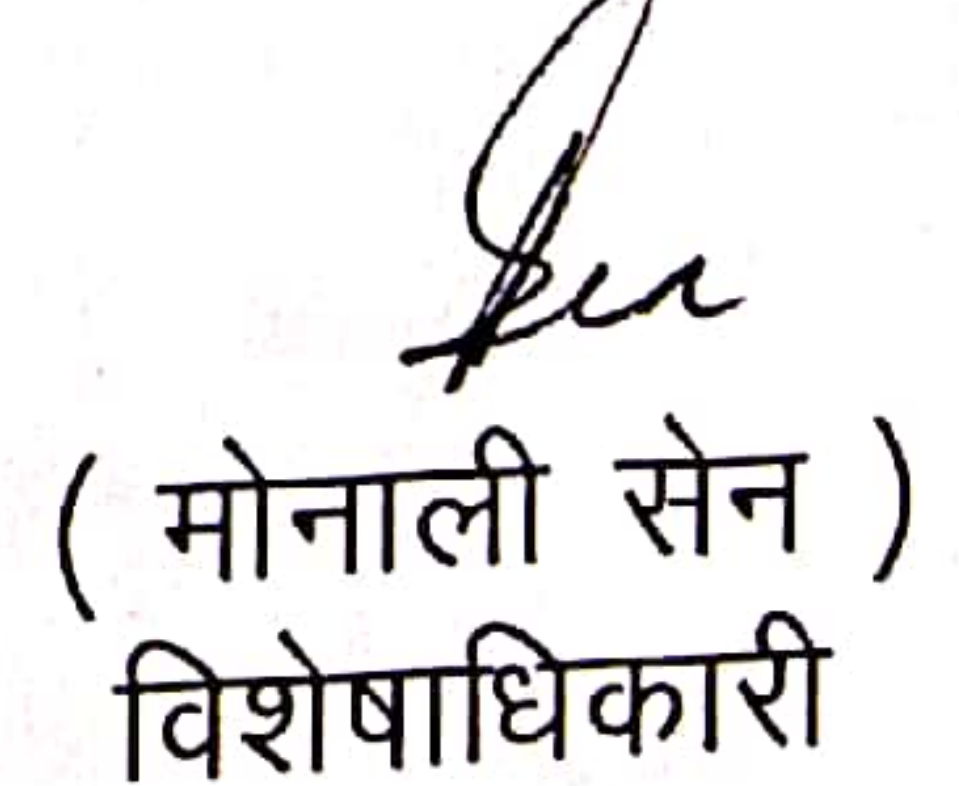 ( मोनाली सेन )
विशेषाधिकारी